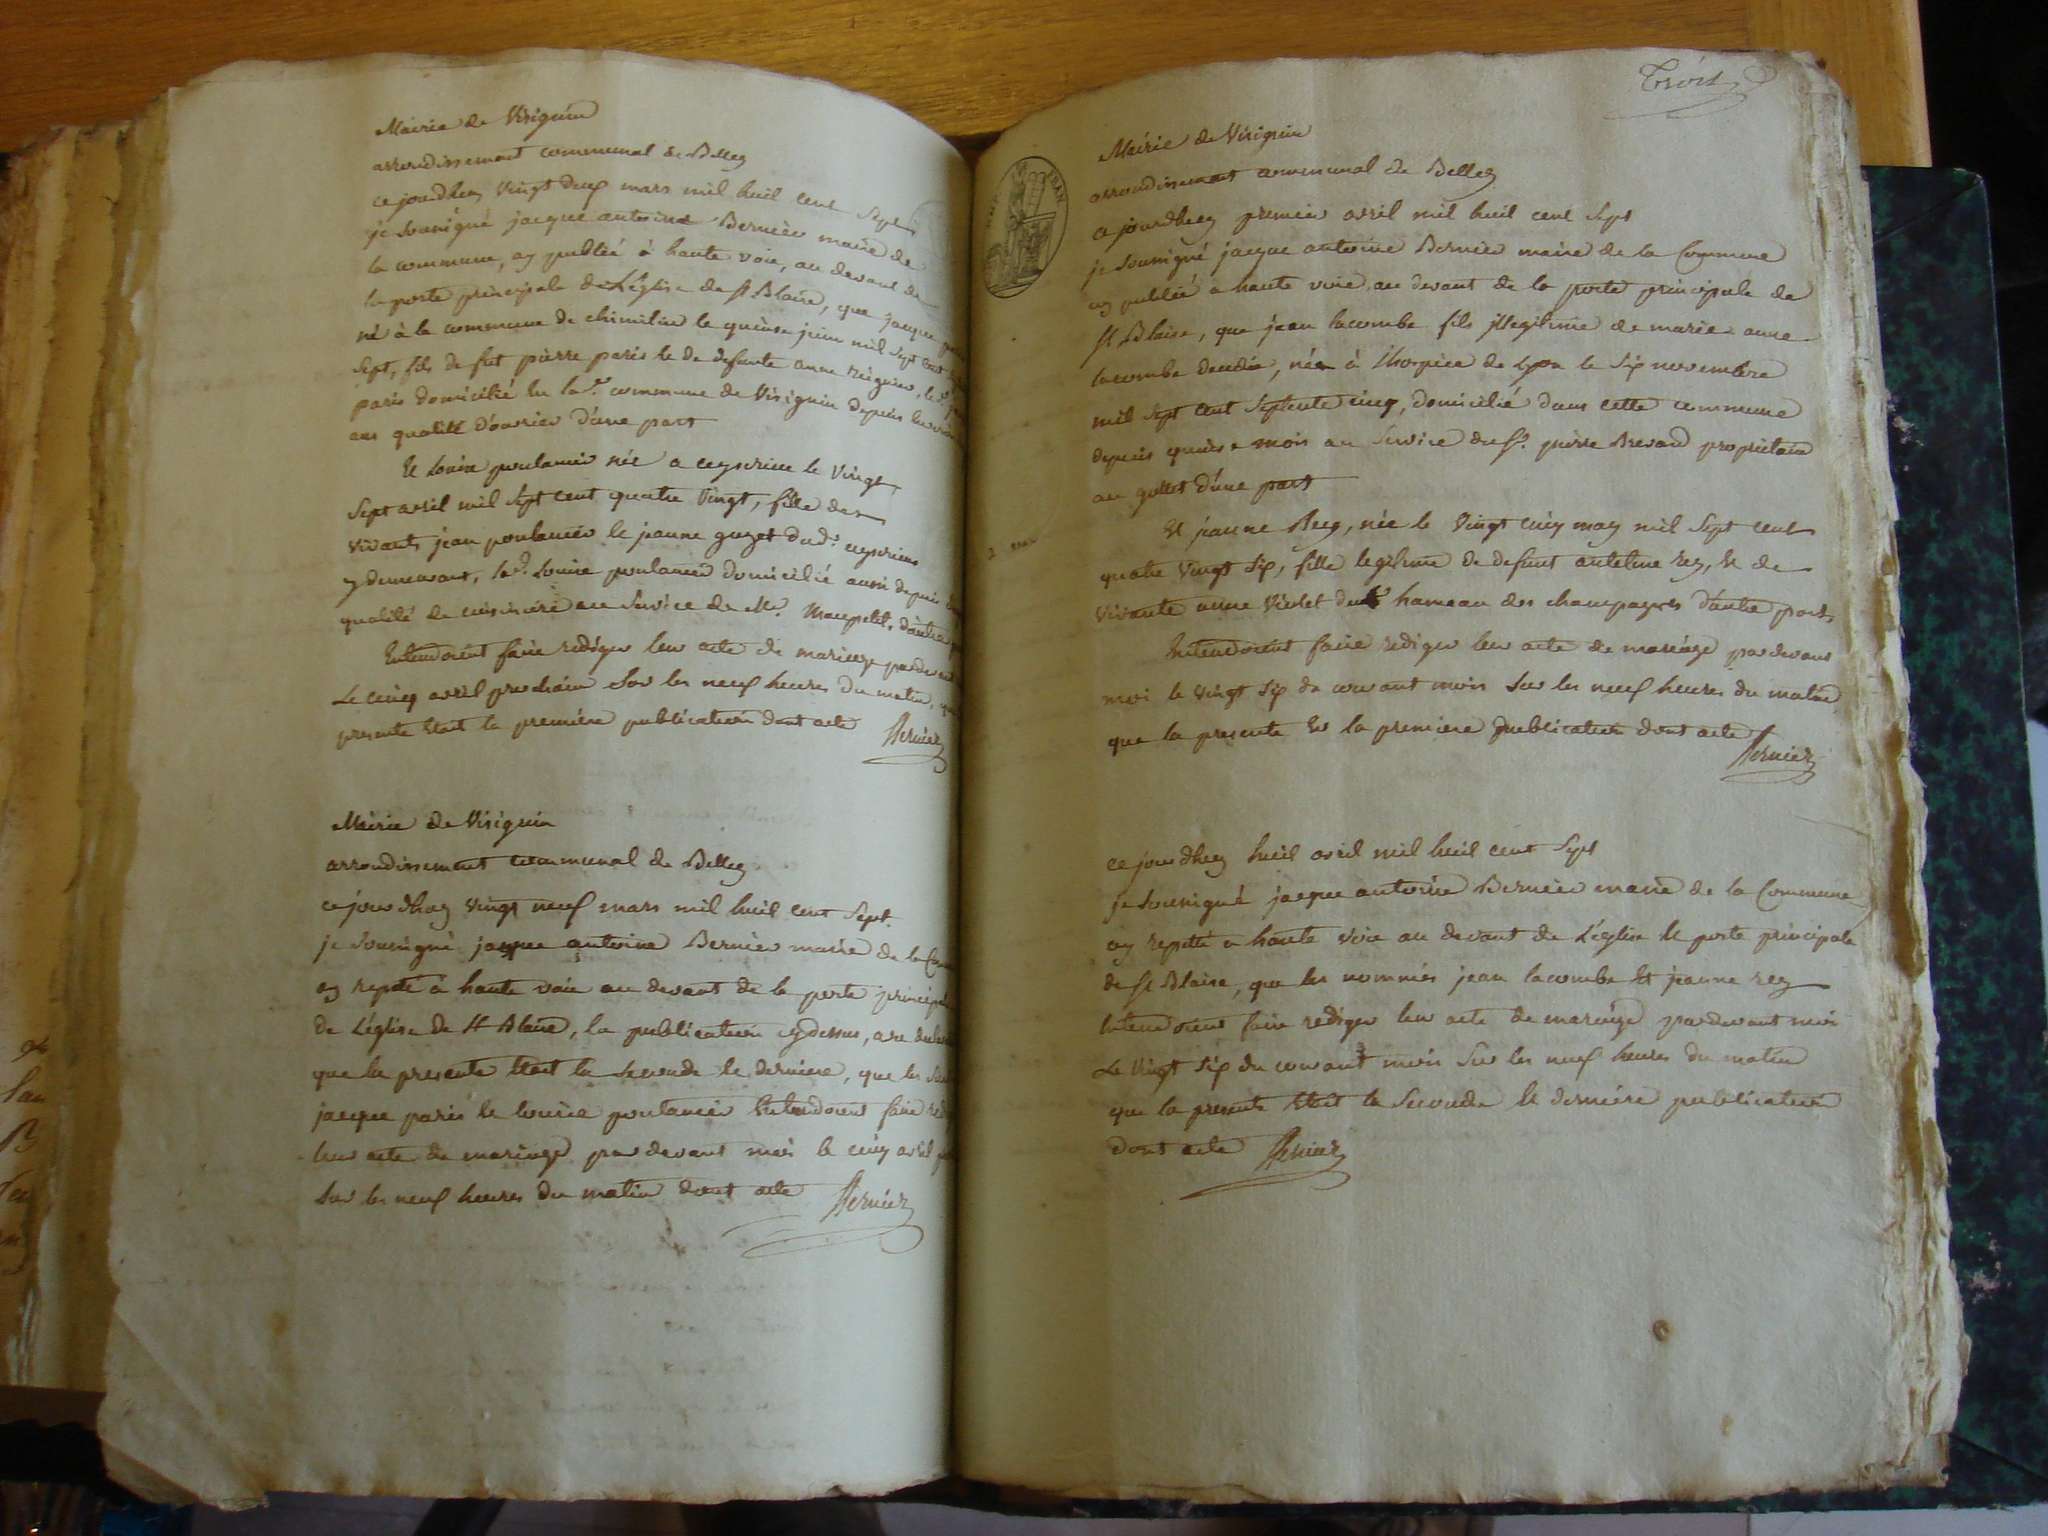 Mairie de Virignin
arrondissement communal de Belley
ce jourdhey vingt deux mars mil huit cent sept
je soussigné jacque antoine Bernier maire de
la commune, ay publié à haute voie, au devant de
la porte principale de l'église de st Blaise, que jacque
né à la commune de chimilin le quinse juin mil sept cent
sept, fils de fut pierre paris et de defunte anne
paris domicilié en la d. commune de Virignin depuis
ans qualité d'ouvrier d'une part
Et Louise poulancier née a ceyserieu le vingt
sept avril mil sept cent quatre vingt, fille des
vivants jean poulancier et jeanne guget dud. ceyserieu
y demeurant, la d. Louise poulancier domicilié aussi depuis
qualité de cuisinière au service de Mr. Maupetit, d'autre
Entendoient faire rédiger leur acte de mariage pardevant
Le cinq avril prochain sur les neuf heures du matin, que
presente etait la première publication dont acte Bernier
Mairie de Virignin
arrondissement communal de Belley
ce jourdhey vingt neuf mars mil huit cent sept
je soussigné jacque antoine Bernier maire de la
ay repeté à haute voie au devant de la porte
de L'église de St Blaise, la publication cy dessus,
que la presente etait la seconde et derniere, que les
jacque paris et louise poulancier entendoient faire
leur acte de mariage pardevant moi le cinq avril
sur les neuf heures du matin dont acte Bernier
Trois
Mairie de Virignin
arrondissement communal de Belley
ce jourdhey premier avril mil huit cent sept
je soussigné jacque antoine Bernier maire de la Commune
ay publié a haute voie au devant de la porte principale de
st Blaise, que jean lacombe fils illegitime de marie anne
lacombe decedée, né à l'hospice de Lyon le six novembre
mil sept cent septente cinq, domicilié dans cette commune
depuis quinse mois au service du sr. pierre Brevard propriétaire
au d'une part
Et jeanne Rey, née le vingt cinq may mil sept cent
quatre vingt six, fille legitime de defunt antelme rey, et de
vivante anne Violet du hameau des champagnes d'autre part,
Entendoient faire rediger leur acte de mariage pardevant
moi le vingt six de courant mois sur les neuf heures du matin
que la presente est la premiere publication dont acte Bernier
ce jourdhey huit avril mil huit cent sept
je soussigné jacque antoine Bernier maire de la Commune
ay repeté a haute voie au devant de l'église et porte principale
de st Blaise, que les nommés jean lacombe et jeanne rey
entendoient faire rediger leur acte de mariage pardevant moi
Le vingt six du courant mois sur les neuf heures du matin
que la presente etait la seconde et dernière publication
dont acte Bernier